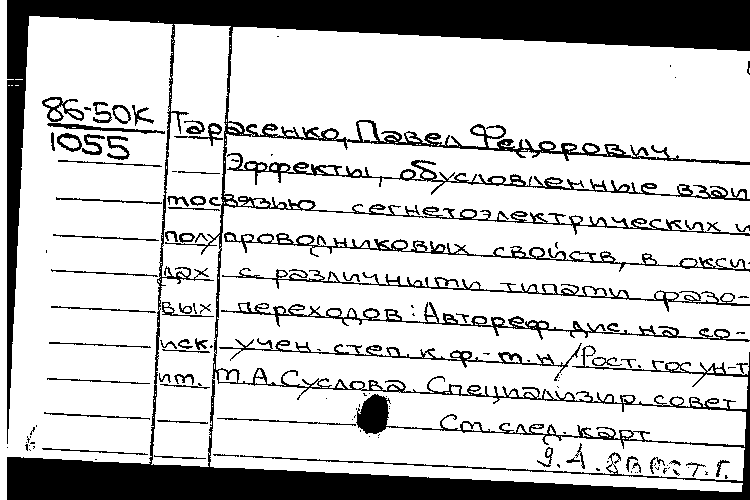 86-50К
1055
Тарасенко, Павел Федорович.
Эффекты, обусловленные взаи
мосвязью сегнетоэлектрических и
полупроводниковых свойств, в окси-
дах с различными типами фазо-
вых переходов: Автореф. дис. на со-
иск. учен. степ. к.ф.-м.н./Рост. гос ун-т
им. М.А. Суслова. Специализир. совет
См. след. карт